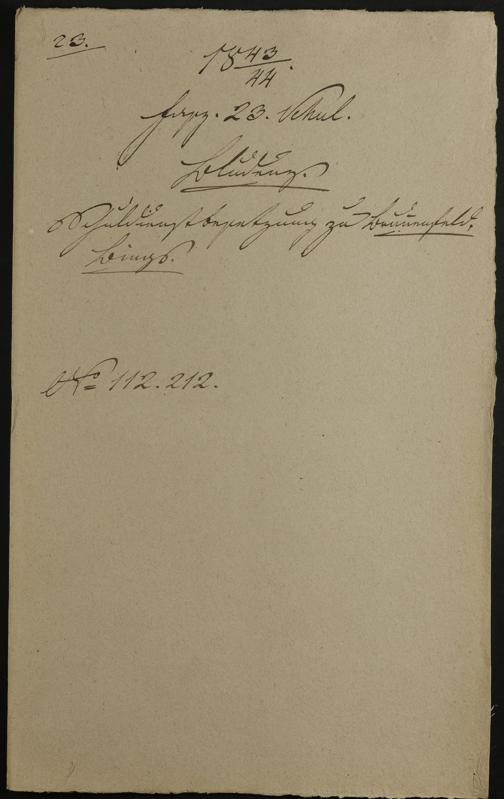 23.
18 43/44.
Fasz. 23. Schul.
Bludenz.
Schuldienstbesetzung zu Brunnenfeld,
Bings.
No 112. 212.